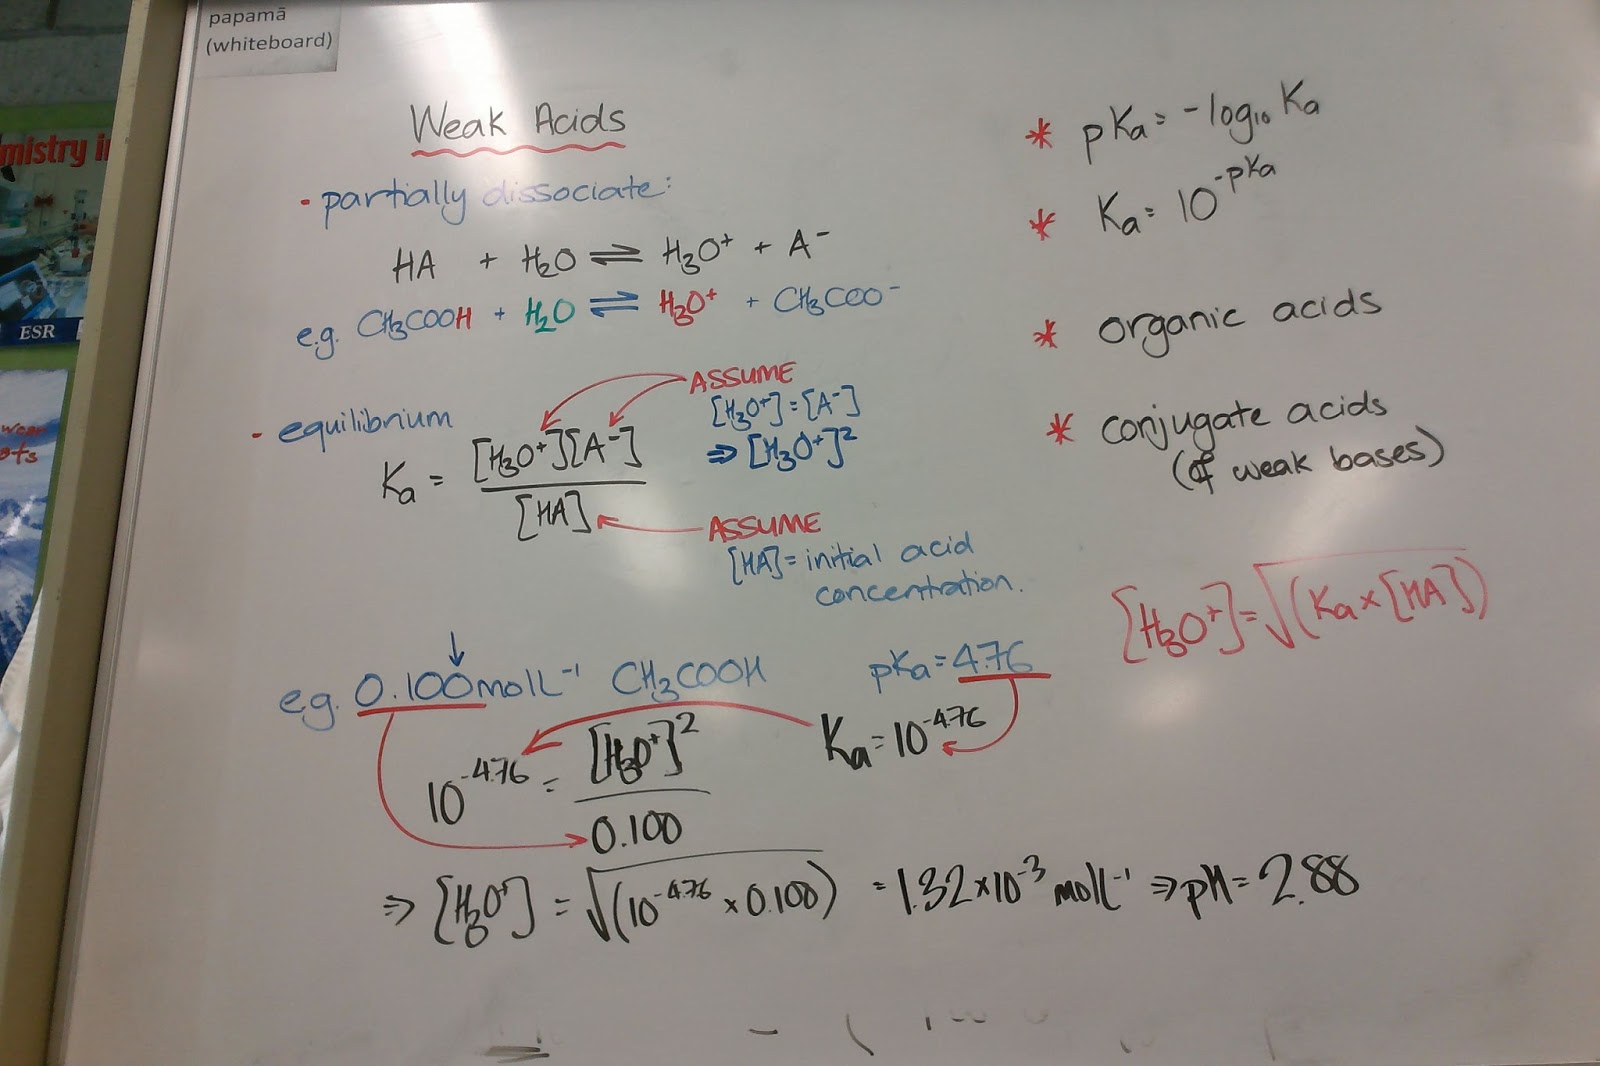 papamā
(whiteboard)
mistry in
ESR
Weak Acids
• partially dissociate:
HA + H₂O ⇌ H₃O⁺ + A⁻
e.g. CH₃COOH + H₂O ⇌ H₃O⁺ + CH₃COO⁻
- equilibrium
Ka = [H₃O⁺][A⁻] / [HA]
ASSUME
[H₃O⁺] = [A⁻]
⇒ [H₃O⁺]²
ASSUME
[HA] = initial acid
concentration.
e.g. 0.100 mol L⁻¹ CH₃COOH pKa = 4.76
Ka = 10^-4.76
10^-4.76 = [H₃O⁺]² / 0.100
⇒ [H₃O⁺] = √(10^-4.76 × 0.100) = 1.32 × 10⁻³ mol L⁻¹ ⇒ pH = 2.88
* pKa = -log₁₀ Ka
* Ka = 10^-pKa
* organic acids
* conjugate acids
(of weak bases)
[H₃O⁺] = √(Ka × [HA])